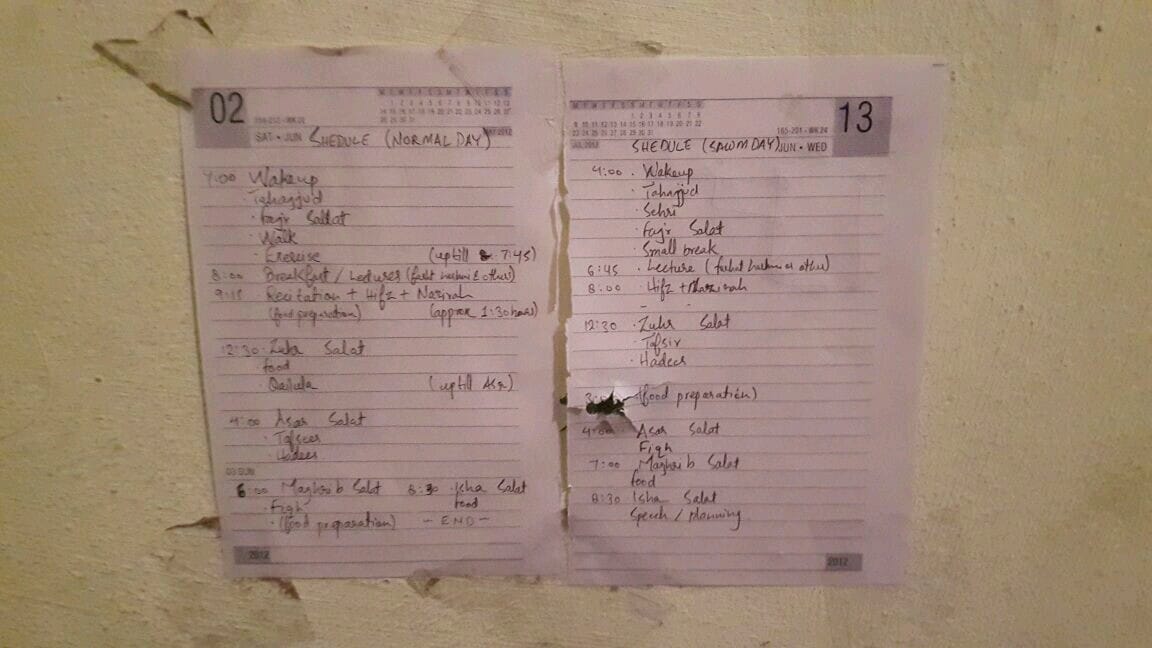 02
SAT • JUN SHEDULE (NORMAL DAY)
4:00 Wakeup
· Tahajjud
· Fajr Sallat
· Walk
· Exercise (uptill 7:45)
8:00 Breakfast / Lectures (farht hashmi & others)
9:15 · Recitation + Hifz + Nazirah
(food preparation) (approx 1:30 hours)
12:30 · Zuhr Salat
· food
· Qailula (uptill Asr)
4:00 Asar Salat
· Tafseer
· Hadees
03 SUN
6:00 Maghrib Salat 8:30 · Isha Salat
· Fiqh food
· (food preparation) — END —
2012
13
165-201 • WK 24
JUL 2012 SHEDULE (SAWM DAY) JUN • WED
4:00 · Wakeup
· Tahajjud
· Sehri
· Fajr Salat
· Small break
6:45 · Lecture (farhat hashmi or other)
8:00 · Hifz + Nazirah
12:30 · Zuhr Salat
· Tafsir
· Hadees
(food preparation)
4:00 Asar Salat
Fiqh
7:00 Maghrib Salat
food
8:30 Isha Salat
Speech / planning
2012